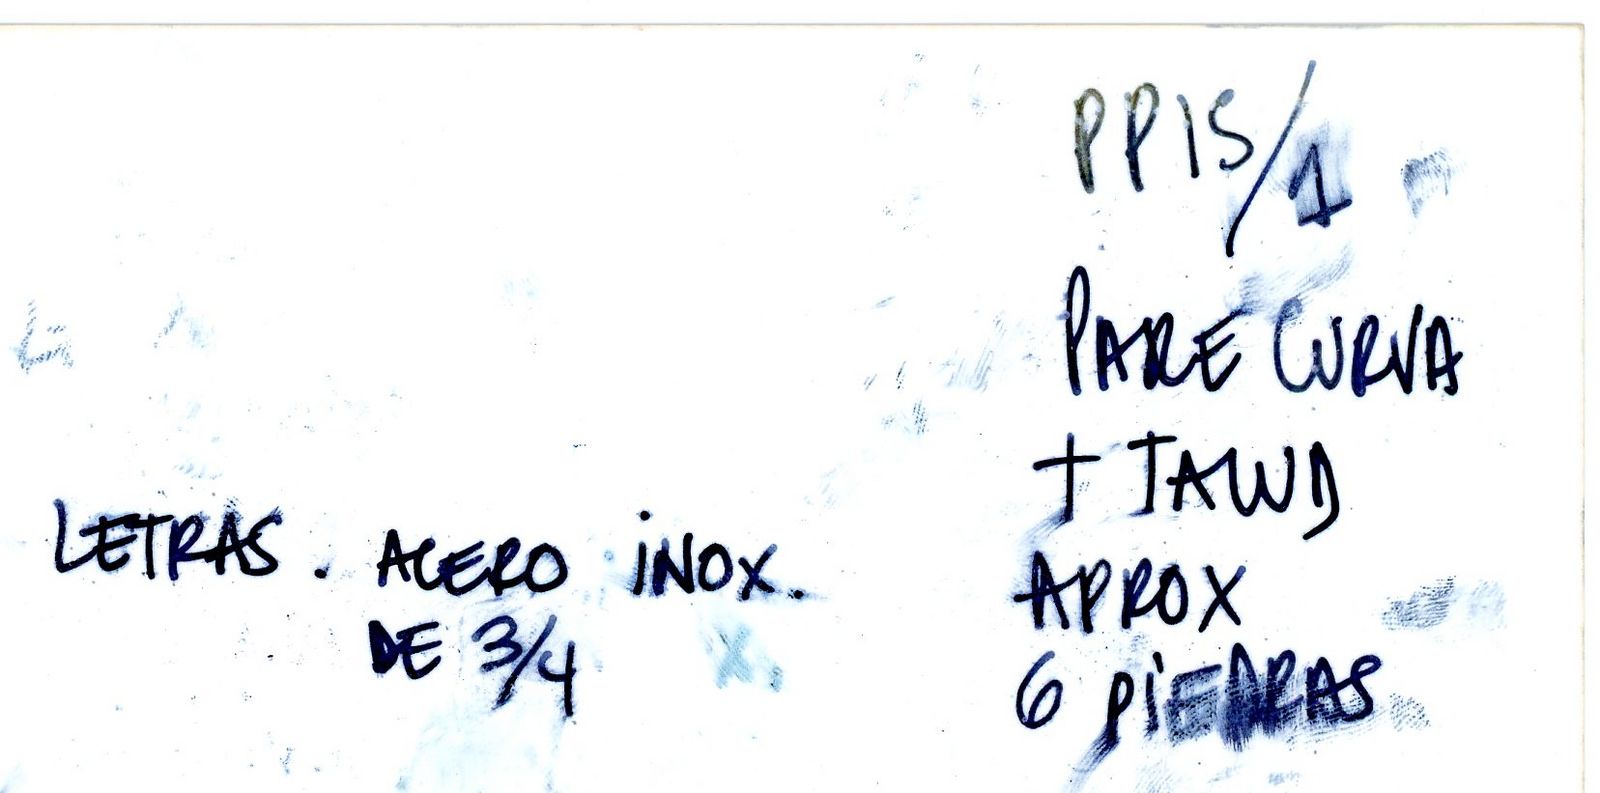 LETRAS. ACERO INOX.
DE 3/4
PP15/1
PARE CURVA
+ TALUD
APROX
6 PIEDRAS